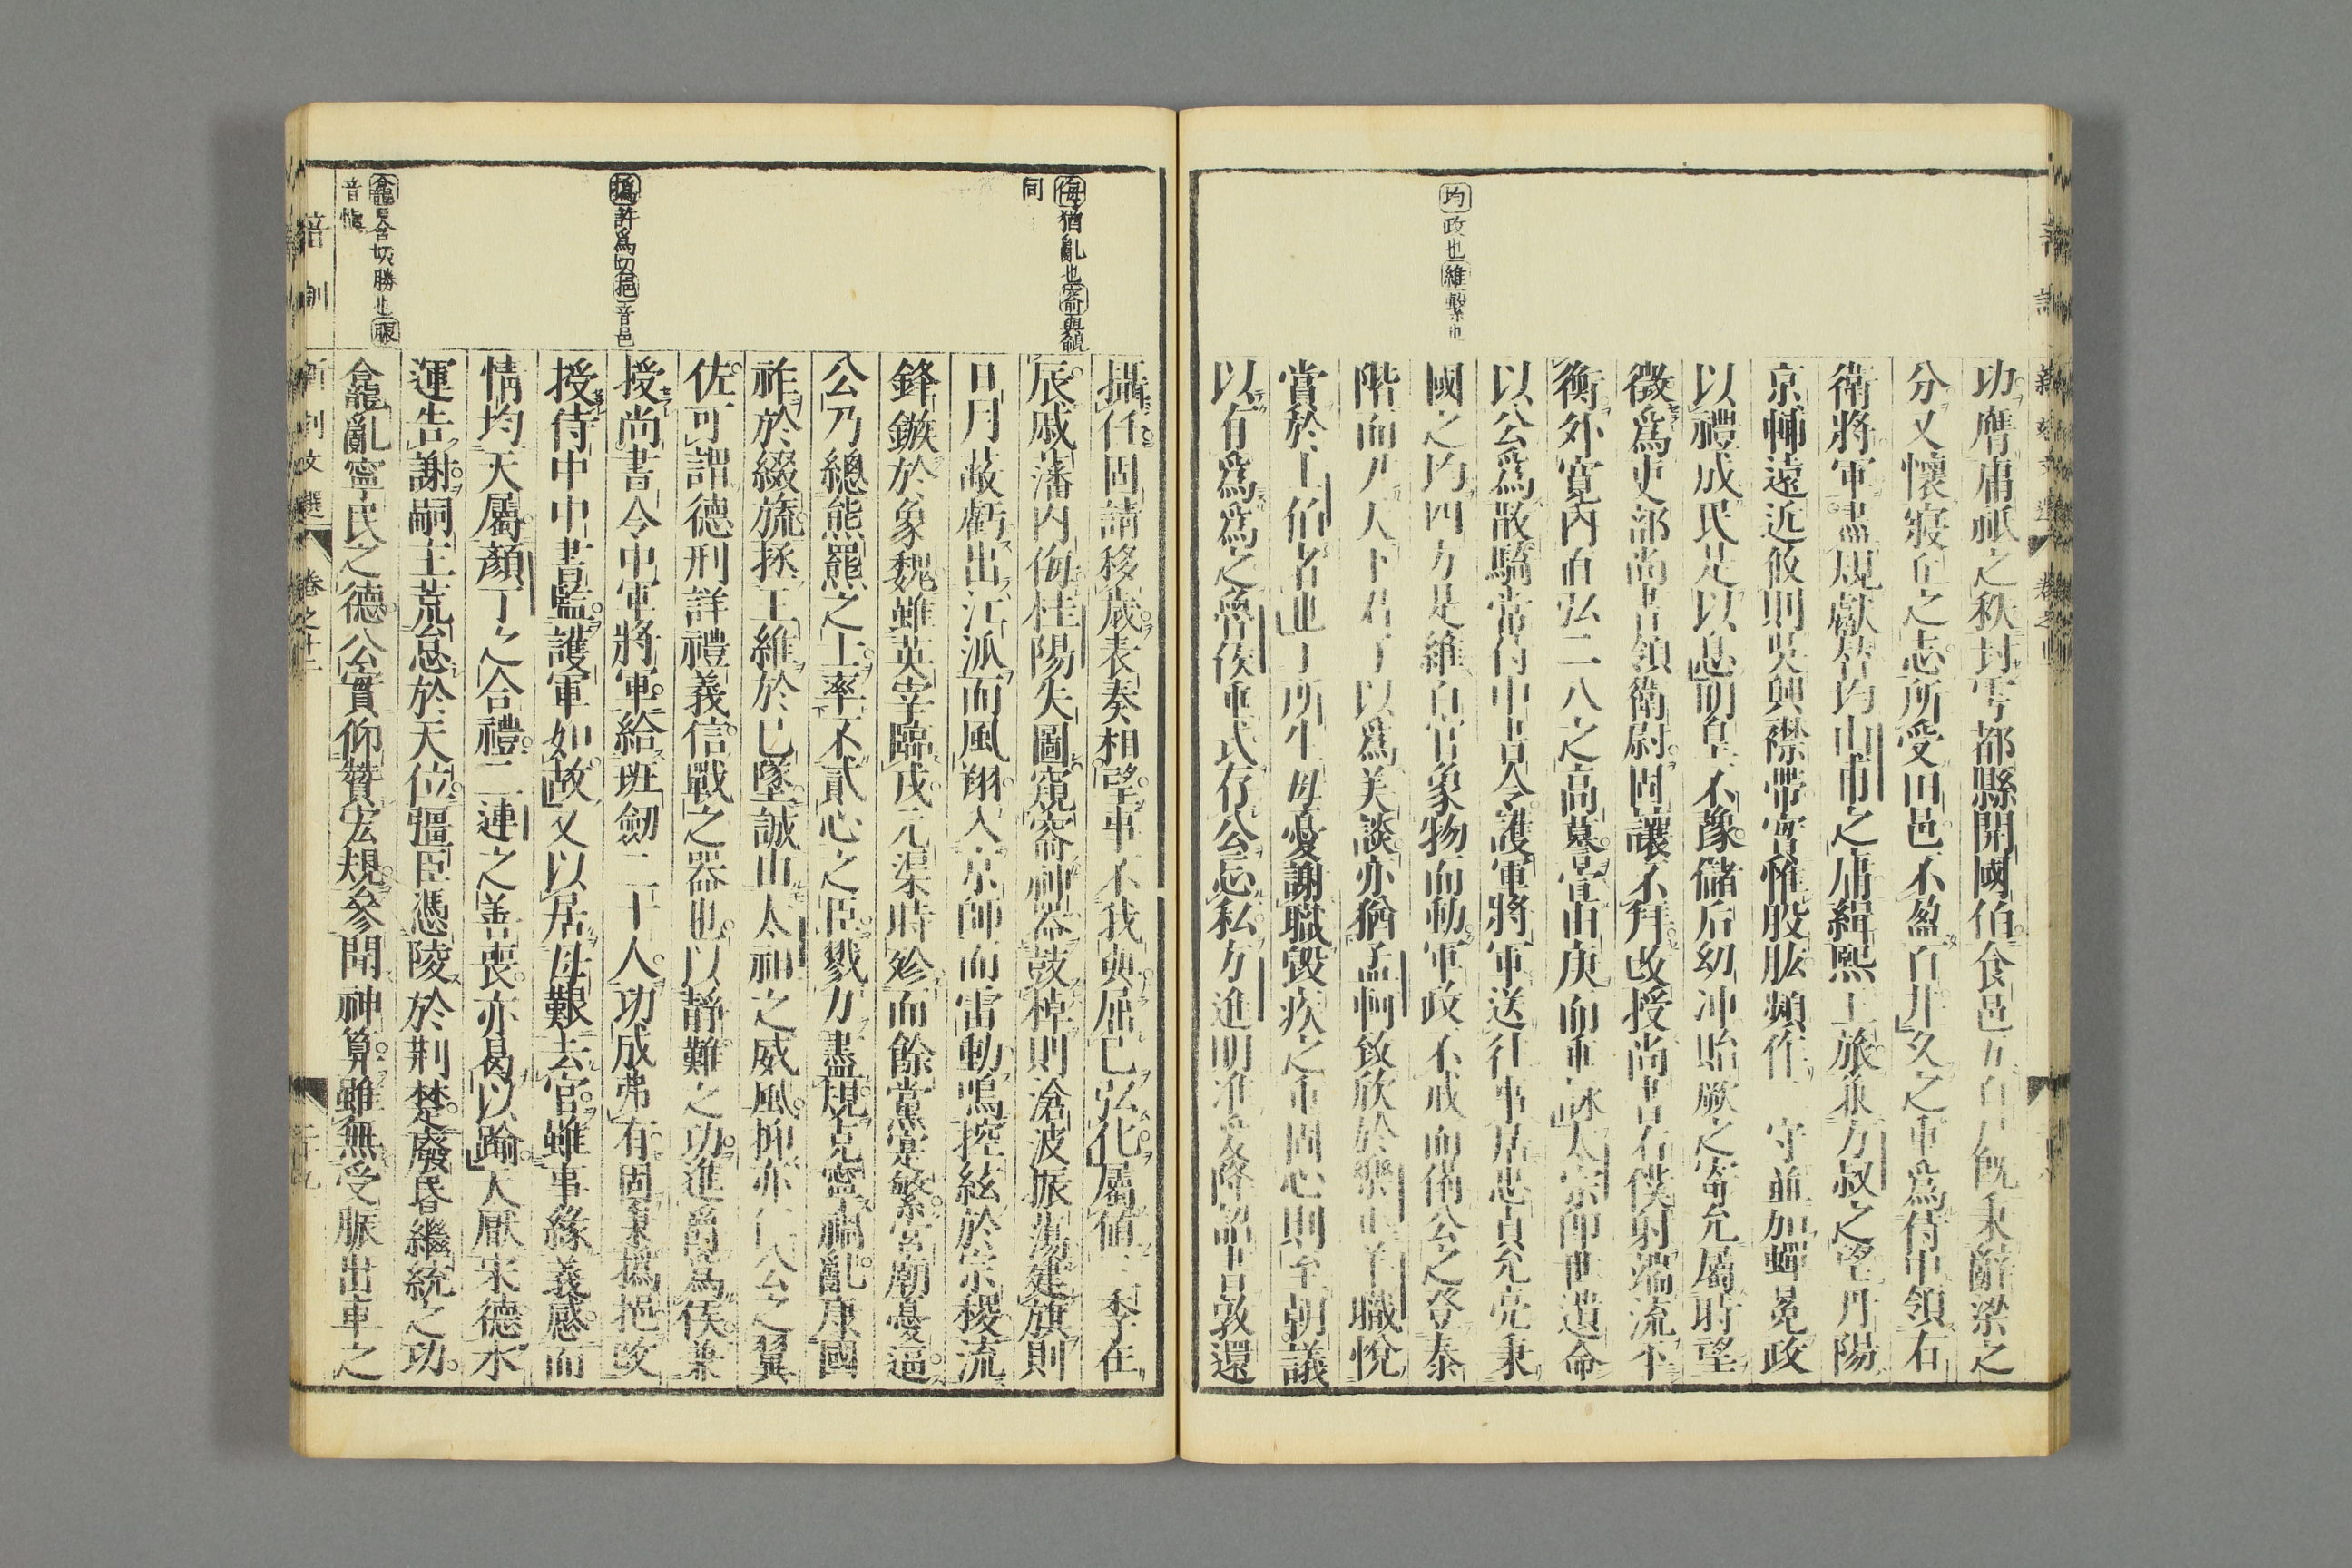 均政也維繫也
功膺庸祇之秩封雩都縣開國伯食邑五百戶既秉辭梁之
分又懷寢丘之志所受田邑不盈百井久之重爲侍中領右
衛將軍盡規獻替均山甫之庸緝熙王旅兼方叔之望丹陽
京輔遠近攸則吳興襟帶實惟股肱頻作二守並加蟬冕政
以禮成民是以息明皇不豫儲后幼冲貽厥之寄允屬時望
徵爲吏部尚書領衛尉固讓不拜改授尚書右僕射端流平
衡外寬內直弘二八之高謩宣由庚而垂詠太宗卽世遺命
以公爲散騎常侍中書令護軍將軍送往事居忠貞允亮秉
國之均四方是維百官象物而動軍政不戒而備公之登泰
階而尹天下君子以爲美談亦猶孟軻致欣於樂正羊職悅
賞於士伯者也丁所生母憂謝職毀疾之重因心則至朝議
以有爲爲之魯侯垂式存公忘私方進明準爰降詔書敦還
侮猶亂也窬與覦
同
撝許爲切挹音邑
龕口含切勝也脤
音慎
攝任固請移歲表奏相望事不我與屈己弘化屬値三季在
辰戚藩內侮桂陽失圖窺窬神器鼓棹則滄波振蕩建旗則
日月蔽虧出江派而風翔入京師而雷動鳴控絃於宗稷流
鋒鏃於象魏雖英宰臨戎元渠時殄而餘黨寔繁宮廟憂逼
公乃總熊羆之士率不貳心之臣戮力盡規克寧禍亂康國
祚於綴旒拯王維於已墜誠由太祖之威風抑亦仁公之翼
佐可謂德刑詳禮義信戰之器也以靜難之功進爵爲侯兼
授尚書令中軍將軍給班劒二十人功成弗有固秉撝挹改
授侍中中書監護軍如故又以居母艱去官雖事緣義感而
情均天屬顏丁之合禮二連之善喪亦曷以踰天厭宋德水
運告謝嗣主荒怠於天位彊臣憑陵於荆楚廢昏繼統之功
龕亂寧民之德公實仰贊宏規參聞神算雖無受脤出車之
音訓
新刻文選
卷之十二
二十九